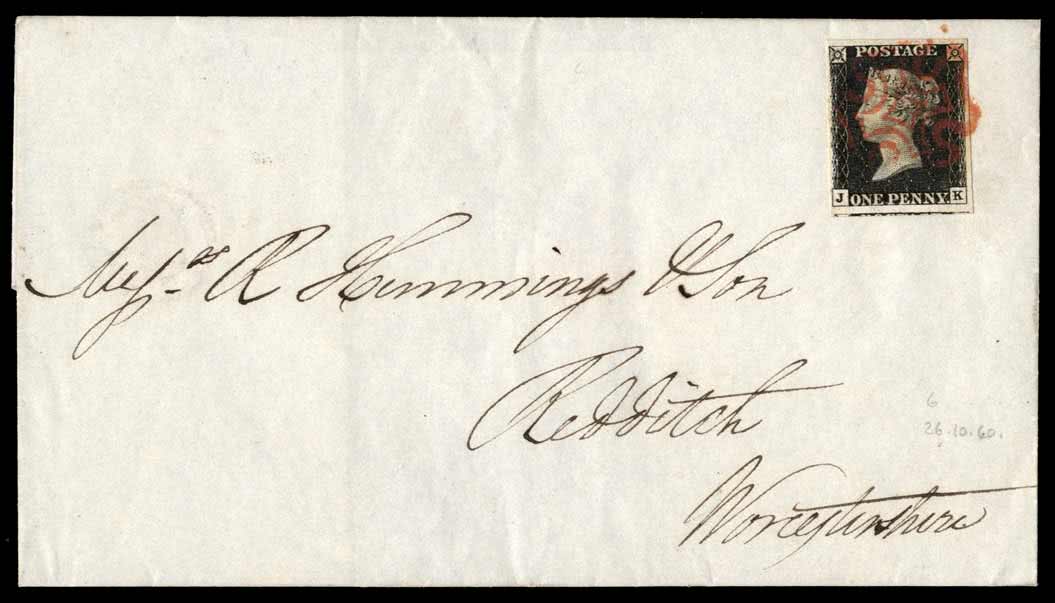 POSTAGE
J ONE PENNY K
Messrs R Hemmings & Son
Redditch
Worcestershire
6
26.10.60.